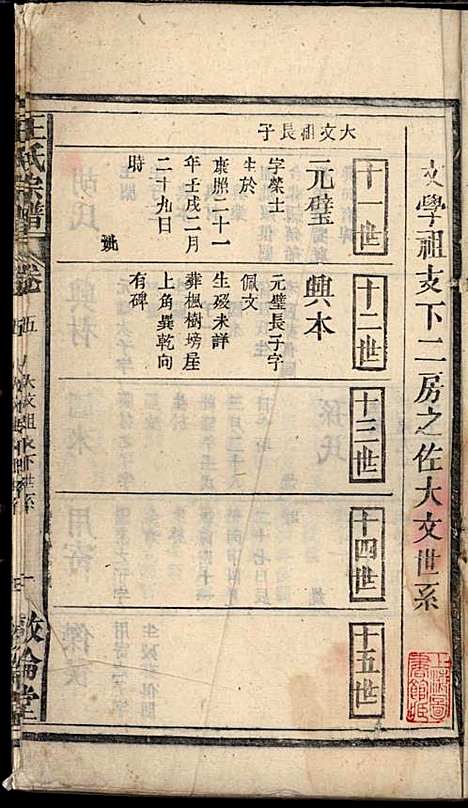 文學祖支下二房之佐大文世系
十一世
大文祖長子
元璧
字榮士
生於
康熙二十一
年壬戌二月
二十九日
時
十二世
興本
元璧長子字
佩文
生歿未詳
葬楓樹塝屋
上角異乾向
有碑
十三世
十四世
十五世
王氏宗譜
卷五
大文祖支下世系
一
敦倫堂
上海圖
書館藏